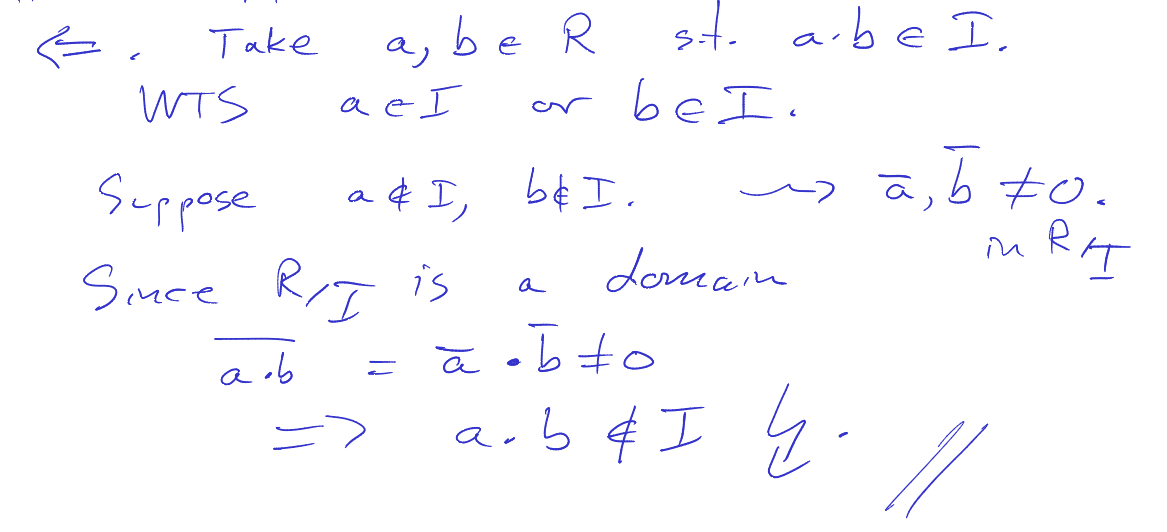 ⇐. Take a, b ∈ R s.t. a·b ∈ I.
WTS a ∈ I or b ∈ I.
Suppose a ∉ I, b ∉ I. ⇝ a̅, b̅ ≠ 0.
in R/I
Since R/I is a domain
\overline{a·b} = a̅ · b̅ ≠ 0
=> a·b ∉ I ↯. //